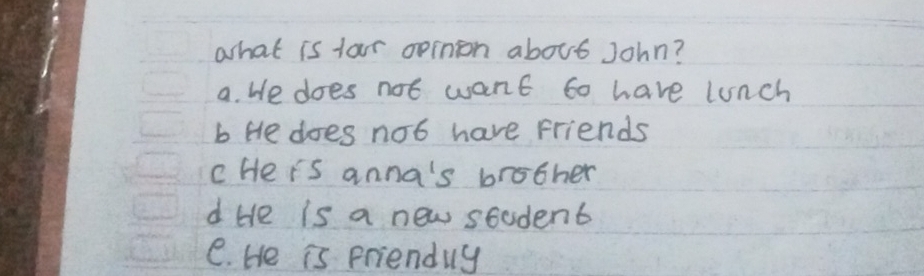 what is your opinion about John?
a. He does not want to have lunch
b He does not have Friends
c He is anna's brother
d He is a new student
e. He is Friendly